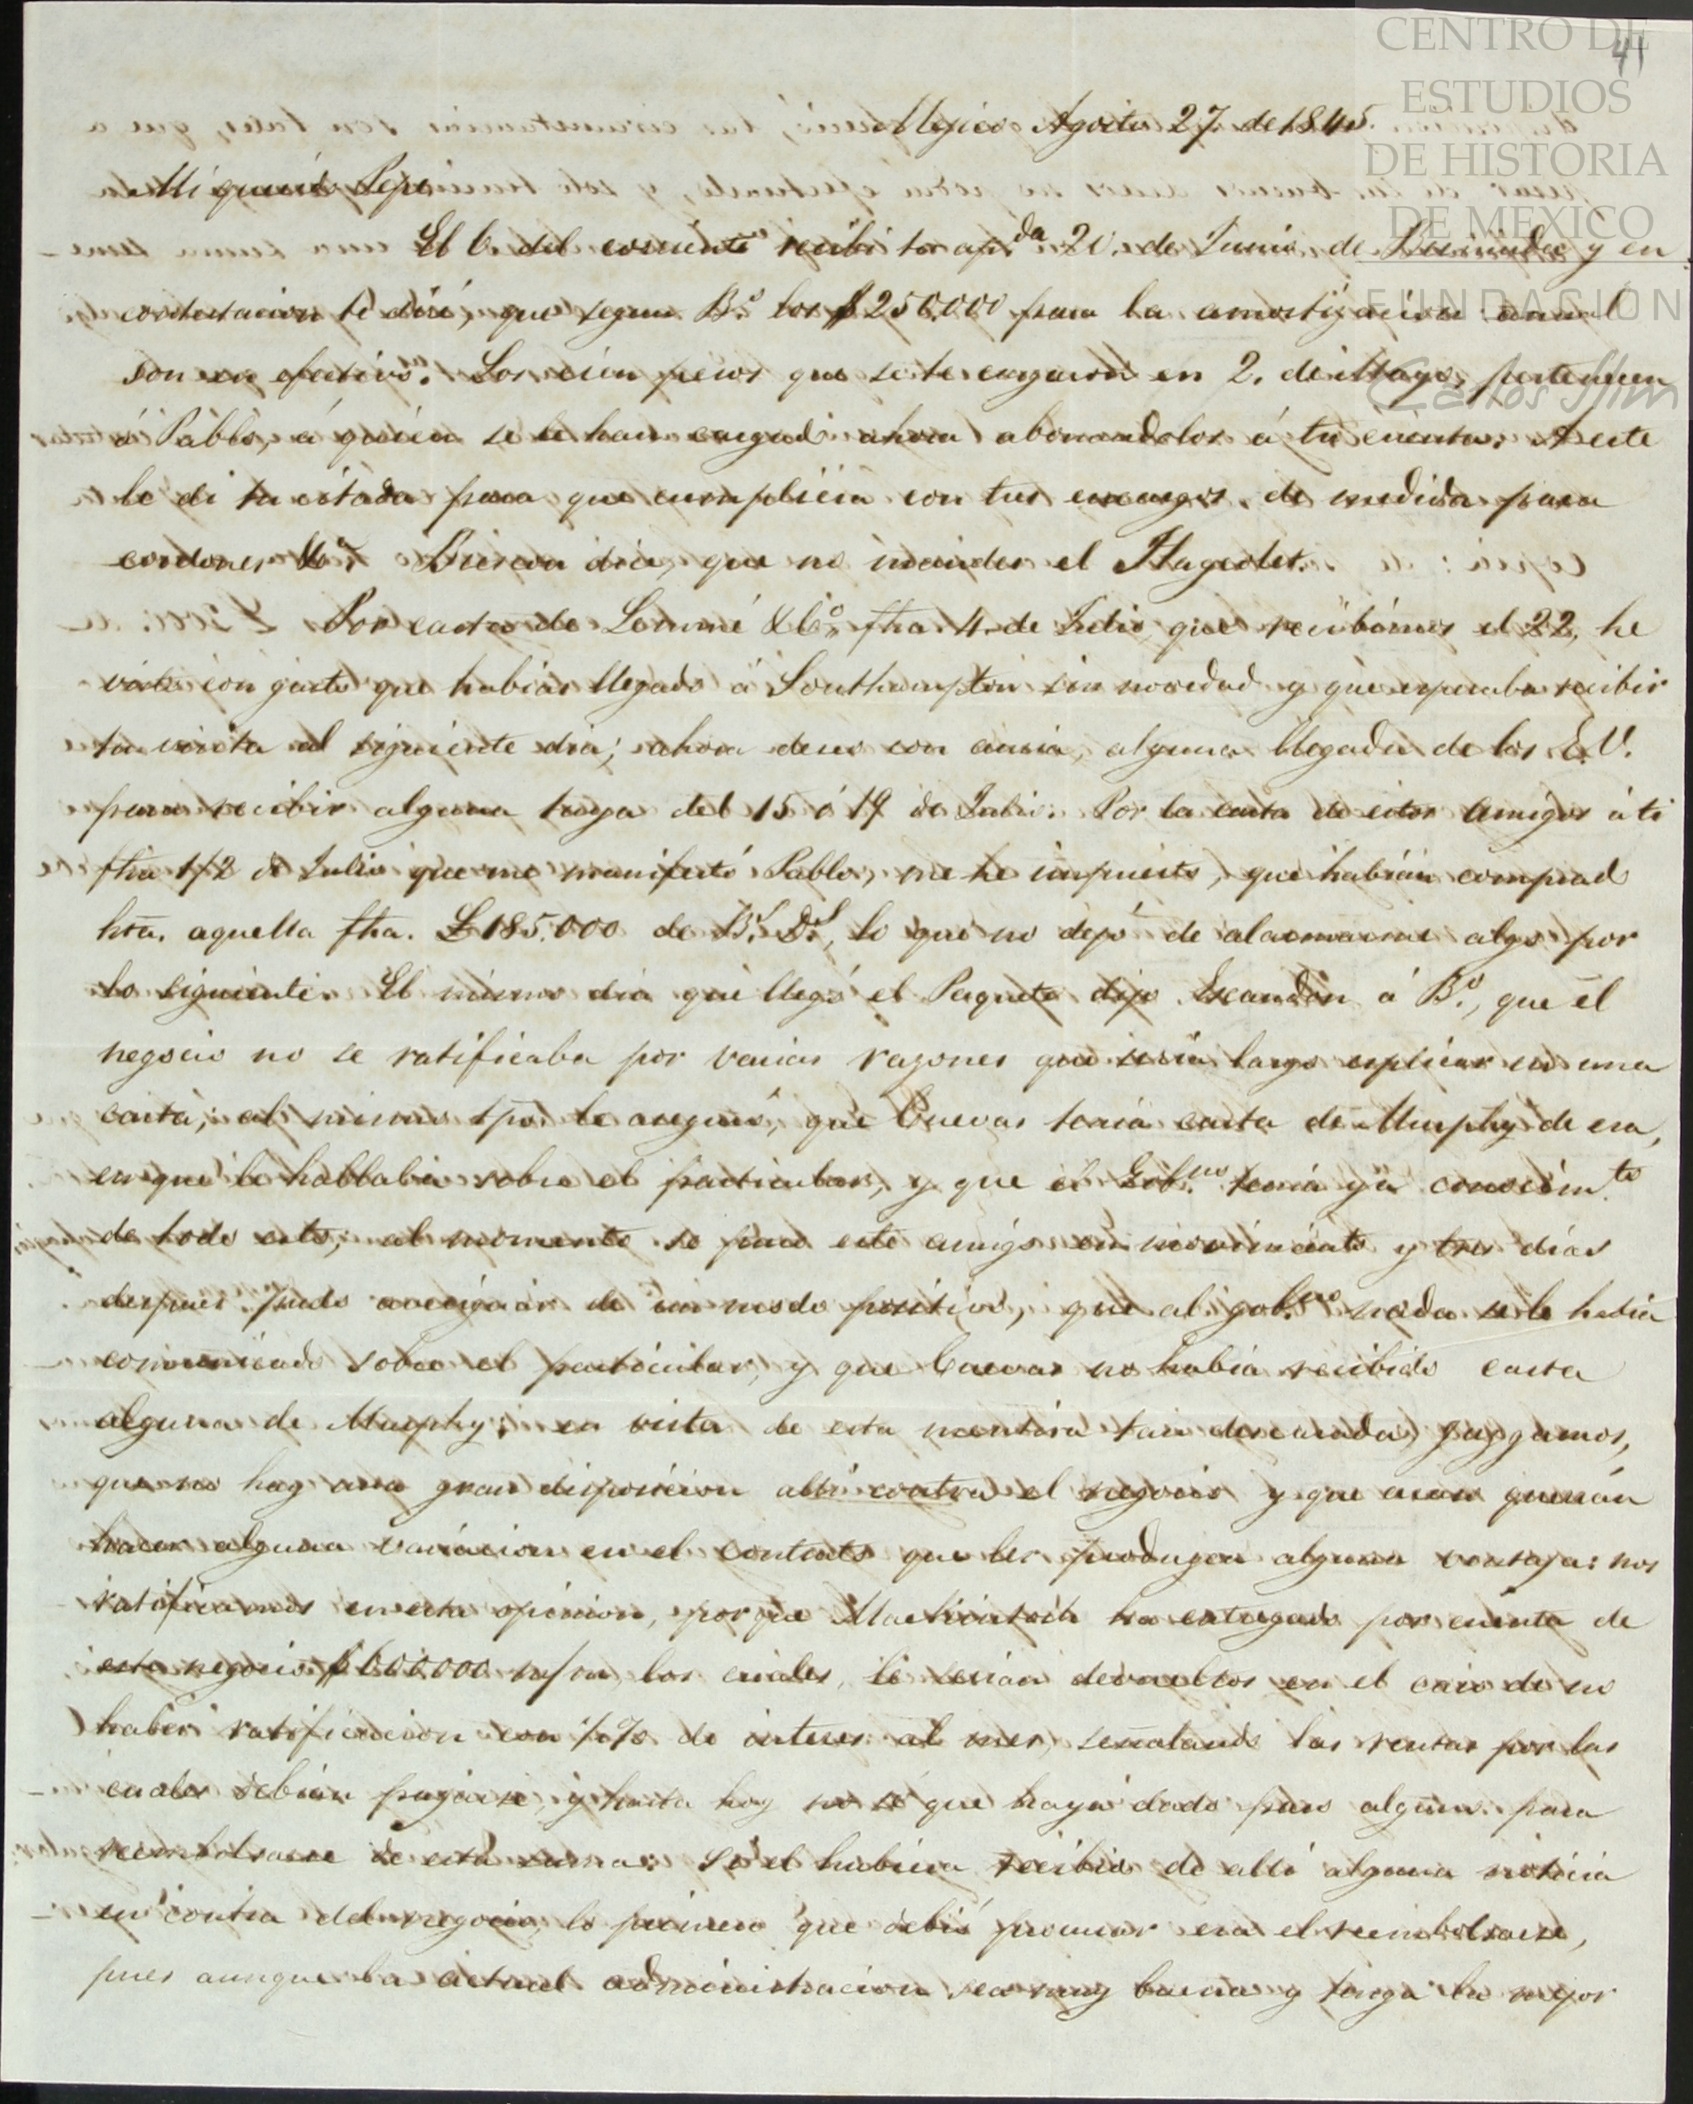 CENTRO DE
ESTUDIOS
DE HISTORIA
DE MEXICO
FUNDACIÓN
Carlos Slim
41
Mejico Agosto 27 de 1845.
Mi querido Pepe
El 6 del corriente recibi tu ap.da 20. de Junio de Bermudas y en
contestacion te diré, que segun B.s los $250.000 para la amortizacion anual
son en efectivo. Los cien pesos que se te cargaron en 2. de Mayo, pertenecen
á Pablo, á quien se le han cargado ahora abonandolos á tu cuenta. A este
le di tu citada para que cumpliera con tus encargos de medida para
cordones &a. dice, que no mandes el Flageolet.
Por carta de & Co. fha. 4 de Julio que recibimos el 22, he
visto con gusto que habias llegado á Southampton sin novedad y que esperaba recibir
tu visita al siguiente dia; ahora deseo con ansia, alguna llegada de los E.U.
para recibir alguna tuya del 15 ó 19 de Julio. Por la carta de estos Amigos á ti
fha 1/2 de Julio que me manifestó Pablo, me he impuesto, que habian comprado
hta. aquella fha. £185.000 de B.s D.s, lo que no dejó de alarmarme algo por
lo siguiente. El mismo dia que llegó el Paquete dijo Escandon á B.s, que el
negocio no se ratificaba por varias razones que seria largo esplicar en una
carta; al mismo tpo. le aseguró, que Cuevas tenia carta de Murphy de esa,
en que le hablaba sobre el particular, y que el Gob.no tenia ya conocim.to
de todo esto; al momento se puso este amigo en movimiento y tres dias
despues pudo averiguar de un modo positivo, que al gob.no nada se le habia
comunicado sobre el particular, y que Cuevas no habia recibido carta
alguna de Murphy: en vista de esta mentira tan descarada, juzgamos,
que no hay una gran disposicion alli contra el negocio y que acaso querrán
hacer alguna variacion en el contrato que les produzca alguna ventaja: nos
ratificamos en esta opinion, porque Mackintosh ha entregado por cuenta de
este negocio $600.000 los cuales, le serian devueltos en el caso de no
haber ratificacion con 1% de interes al mes, señalando las rentas por las
cuales debian pagarse, y hasta hoy no sé que haya dado paso alguno para
reembolsarse de esta suma: Si el hubiera recibido de alli alguna noticia
en contra del negocio, lo primero que debió procurar era el reembolsarse,
pues aunque la actual administracion sea muy buena y tenga la mejor